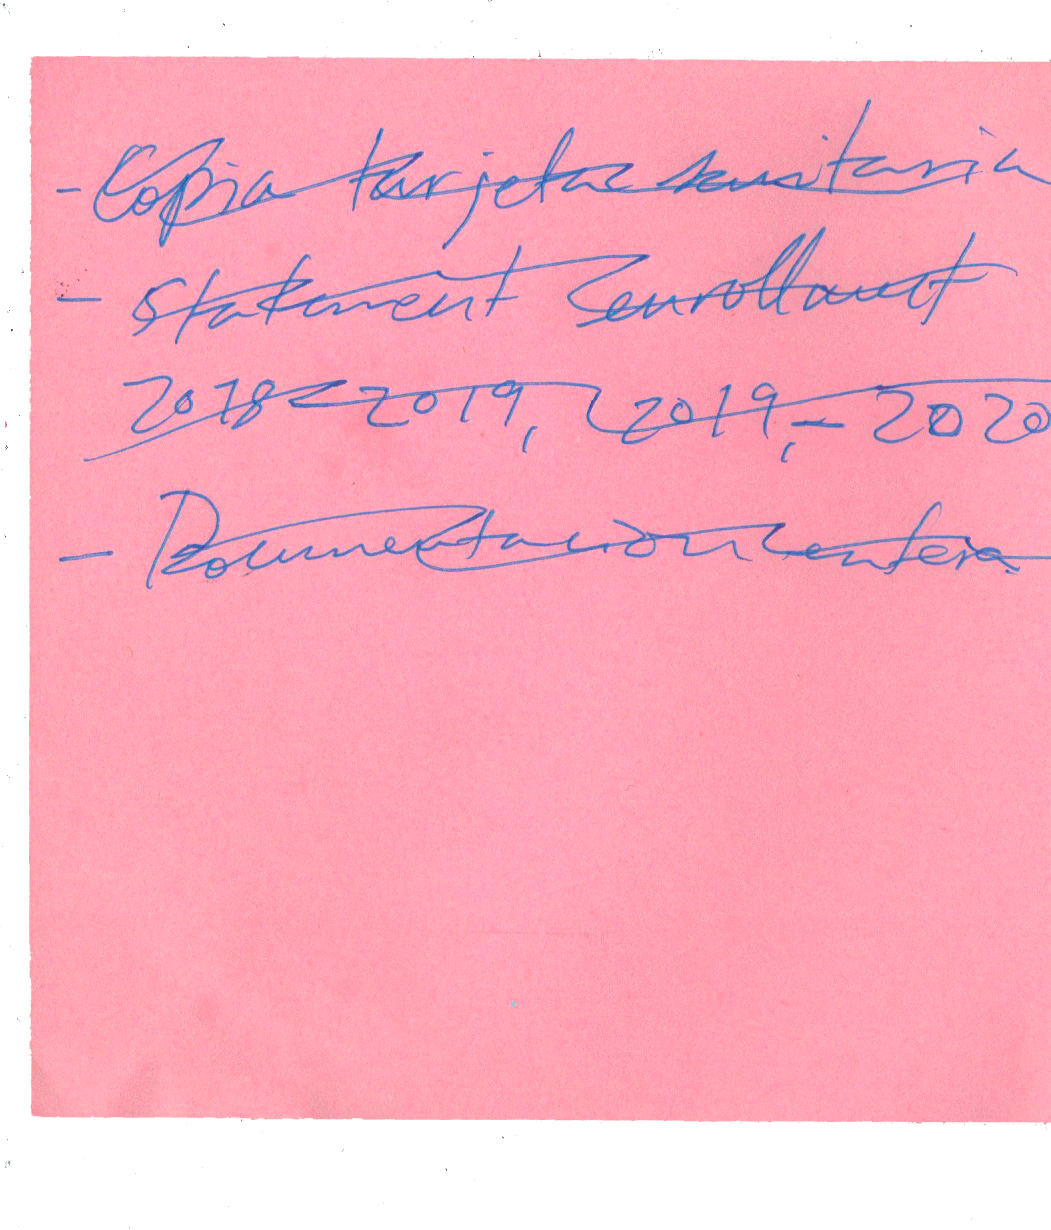 - Copia tarjeta sanitaria
- statement enrollment
2018-2019, 2019,- 2020
- Documentación entera